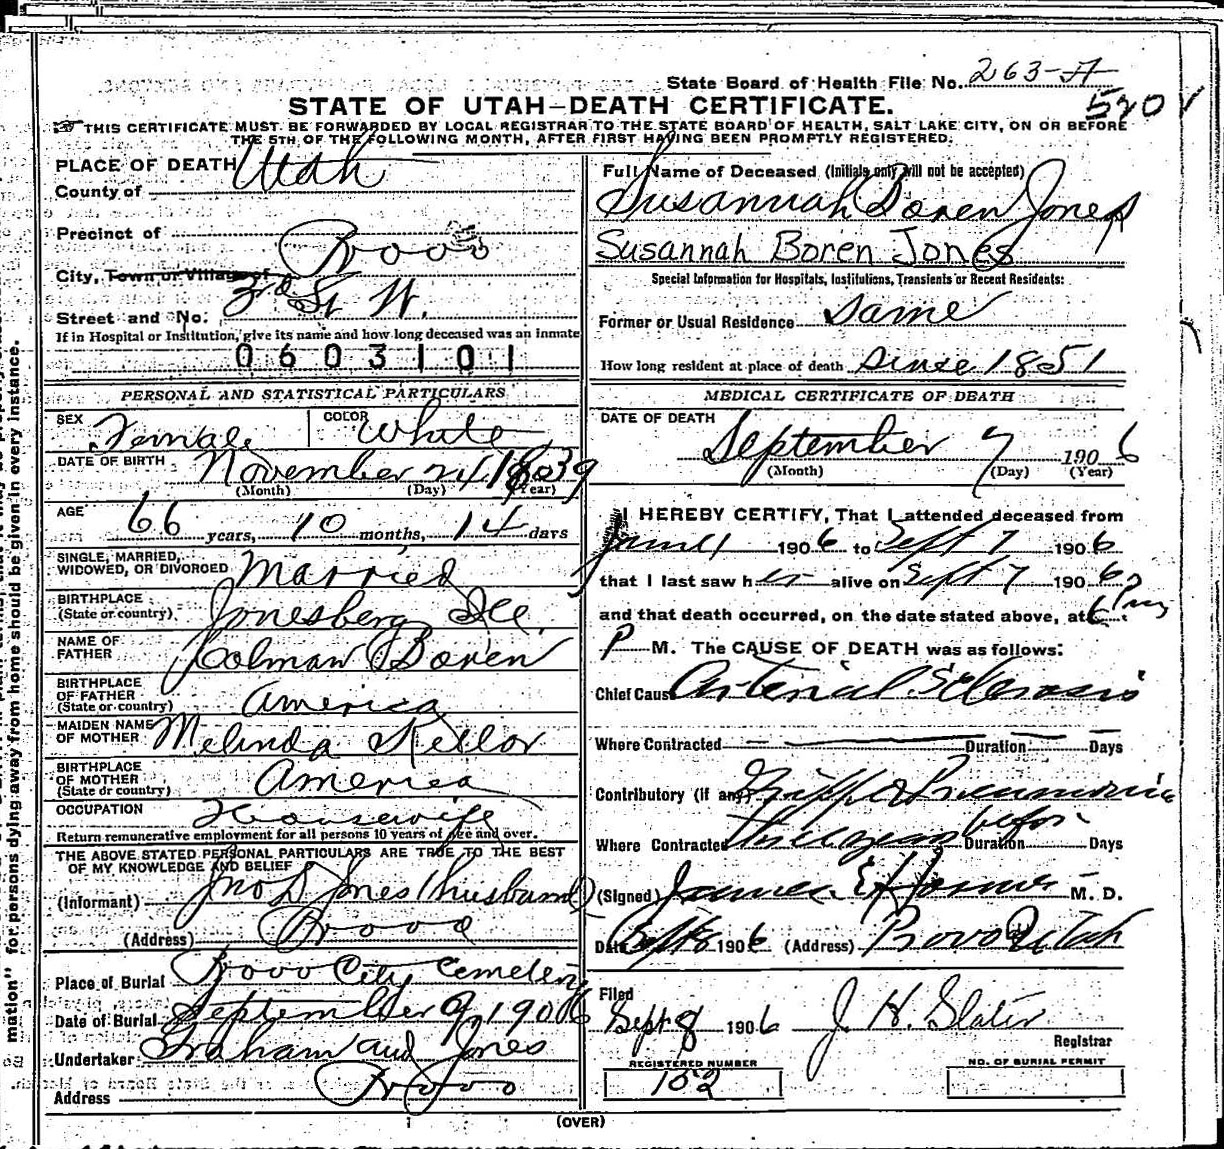 State Board of Health File No. 263-A
520 ✓
STATE OF UTAH—DEATH CERTIFICATE.
THIS CERTIFICATE MUST BE FORWARDED BY LOCAL REGISTRAR TO THE STATE BOARD OF HEALTH, SALT LAKE CITY, ON OR BEFORE
THE 5TH OF THE FOLLOWING MONTH, AFTER FIRST HAVING BEEN PROMPTLY REGISTERED.
PLACE OF DEATH
County of Utah
Precinct of
City, Town or Village of Provo
Street and No. 3rd St W.
If in Hospital or Institution, give its name and how long deceased was an inmate
0603101
PERSONAL AND STATISTICAL PARTICULARS
SEX Female COLOR White
DATE OF BIRTH November 24 1839
(Month) (Day) (Year)
AGE 66 years, 10 months, 14 days
SINGLE, MARRIED,
WIDOWED, OR DIVORCED Married
BIRTHPLACE
(State or country) Jonesberg Ill.
NAME OF
FATHER Colman Boren
BIRTHPLACE
OF FATHER
(State or country) America
MAIDEN NAME
OF MOTHER Melinda Kellor
BIRTHPLACE
OF MOTHER
(State or country) America
OCCUPATION Housewife
Return remunerative employment for all persons 10 years of age and over.
THE ABOVE STATED PERSONAL PARTICULARS ARE TRUE TO THE BEST
OF MY KNOWLEDGE AND BELIEF
(Informant) Jno D Jones (husband)
(Address) Provo
Place of Burial Provo City Cemetery
Date of Burial September 9 1906
Undertaker Graham and Jones
Address Provo
Full Name of Deceased (Initials only will not be accepted)
Susannah Boren Jones
Susannah Boren Jones
Special Information for Hospitals, Institutions, Transients or Recent Residents:
Former or Usual Residence Same
How long resident at place of death since 1851
MEDICAL CERTIFICATE OF DEATH
DATE OF DEATH
September 7 1906
(Month) (Day) (Year)
I HEREBY CERTIFY, That I attended deceased from
1906 to Sept 7 1906
that I last saw her alive on Sept 7 1906
and that death occurred, on the date stated above, at 6
P M. The CAUSE OF DEATH was as follows:
Chief Cause Arterial Sclerosis
Where Contracted Duration Days
Contributory (if any) Pneumonia
Where Contracted before Duration Days
(Signed) James E M. D.
Date 1906 (Address) Provo Utah
Filed
Sept 8 1906 J. H. Slater
Registrar
REGISTERED NUMBER
152
NO. OF BURIAL PERMIT
(OVER)
mation" for persons dying away from home should be given in every instance.